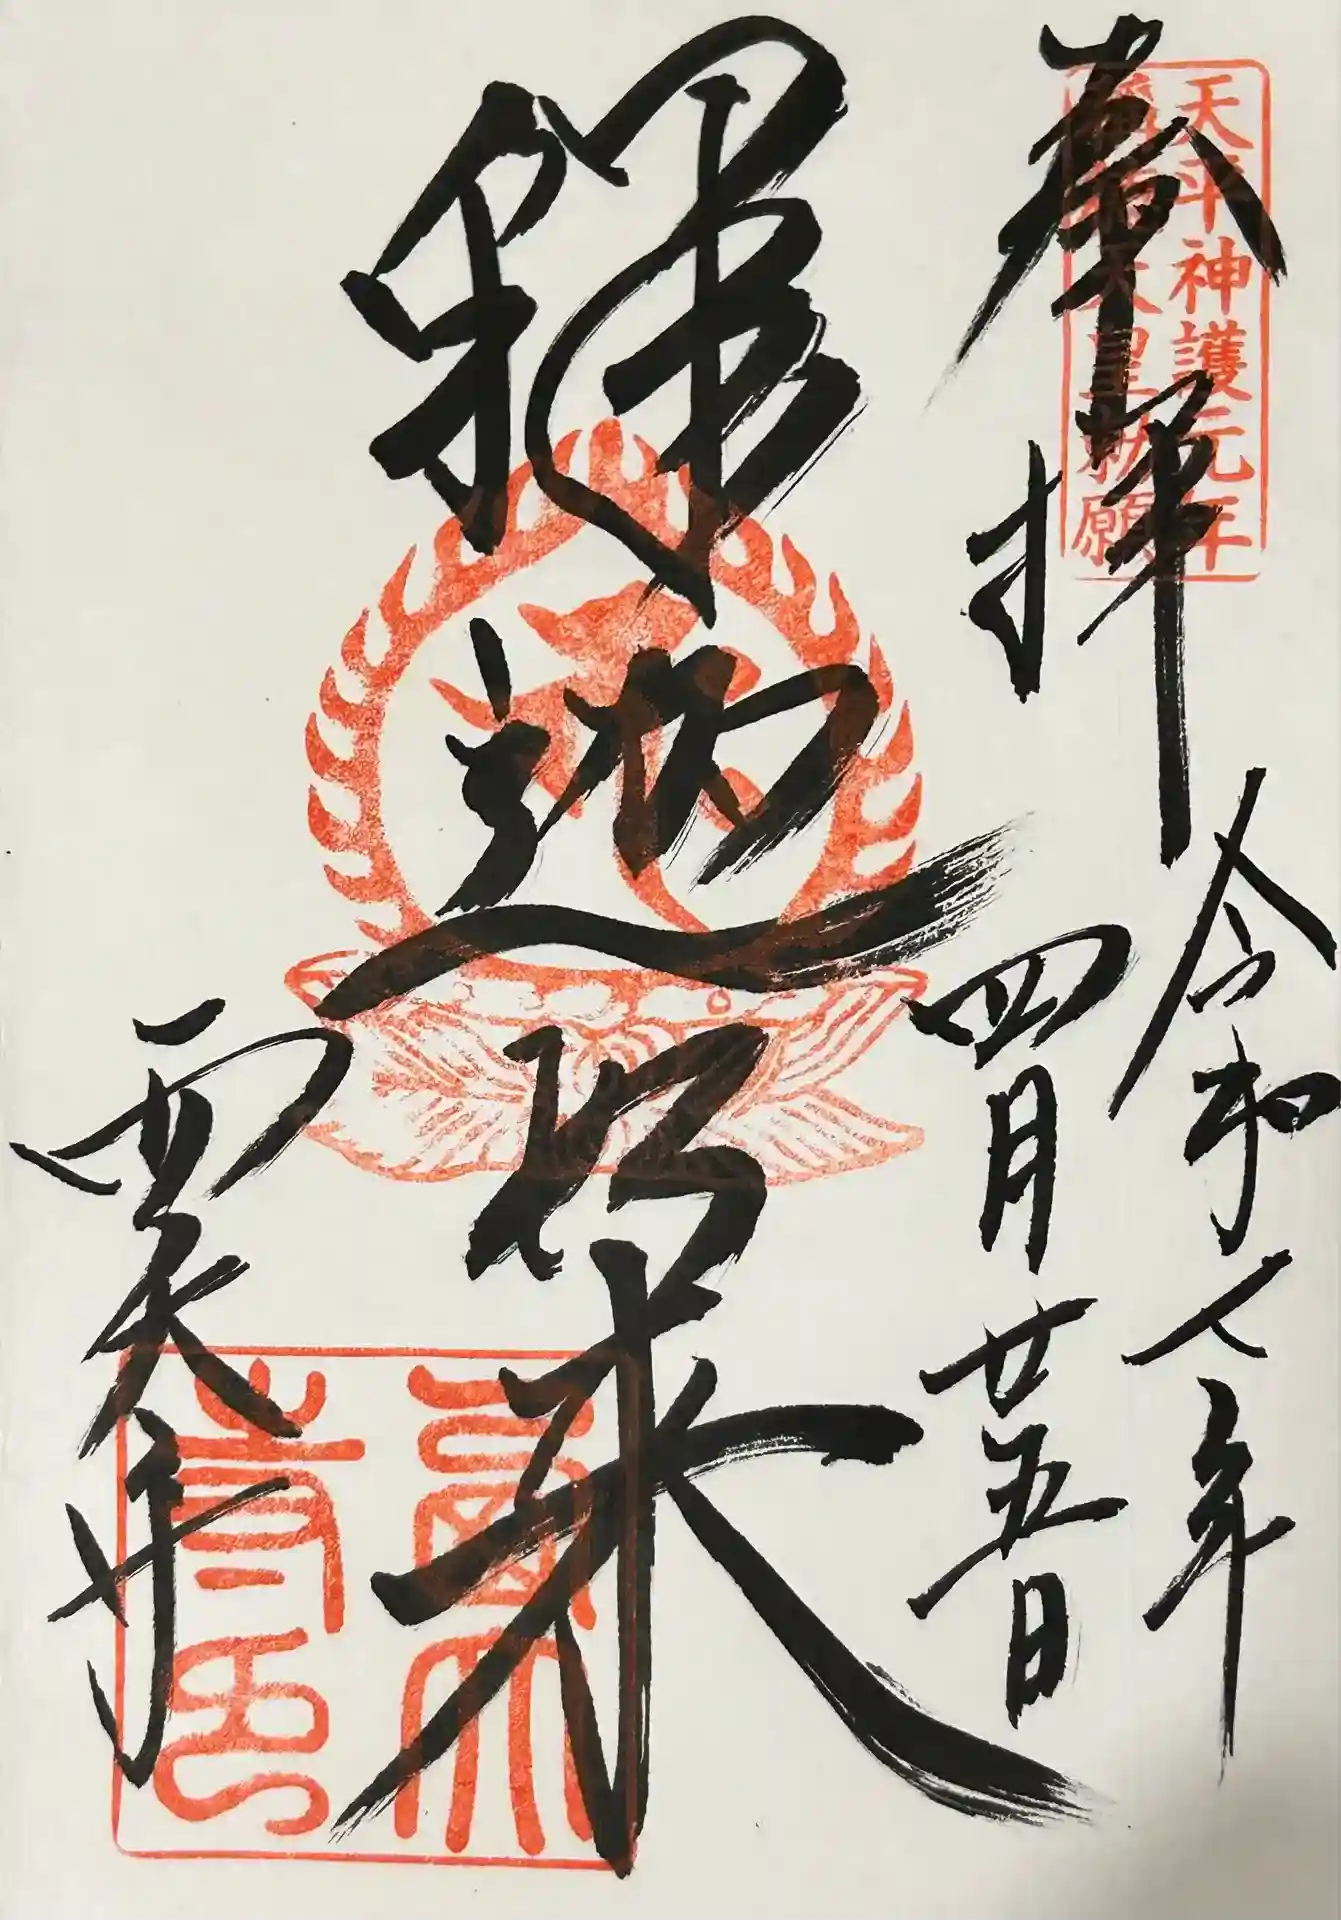 奉拝
天平神護元年
稱徳天皇勅願
令和七年
四月廿五日
釋迦如来
西大寺
西大
寺印